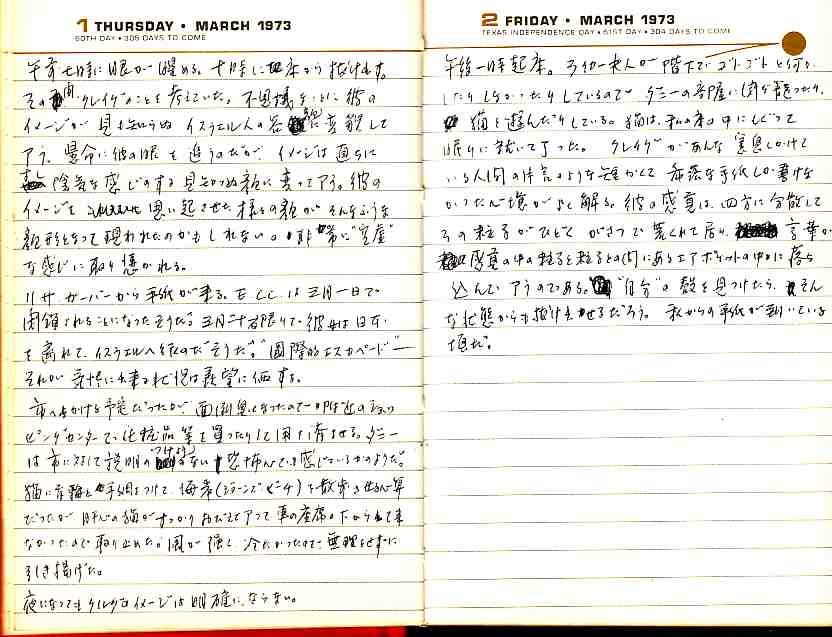 1 THURSDAY • MARCH 1973
60TH DAY • 305 DAYS TO COME
午前七時に眼が醒める。十時に床から抜け出す。
その間クレイグのことを考えていた。不思議なことに彼の
イメージが見も知らぬイスラエル人の容貌に変貌して
アう。懸命に彼の眼を追うのだが、イメージは直ちに
陰気な感じのする見知らぬ顔に変ってアう。彼の
イメージを 思い起させた様々の顔がそんなふうな
顔形となって現われたのかもしれない。非常に"空虚"
な感じに取り憑かれる。
リサ・ガーバーから手紙が来る。E.C.C.は三月一日で
閉鎖されることになったそうだ。三月二十 限りで彼女は日本
を離れて、イスラエルへ 行くのだそうだ。"国際的エスカペード"
それが 出来る状況は羨望に価する。
市へ出かける予定だったが、面倒臭くなったので 近のショッ
ピングセンターで化粧品等を買ったりして用を済ませる。ダニー
は市に対して説明のつけようのない恐怖心を感じているかのようだ。
猫に首輪と手綱をつけて、海岸(ジョーンズ・ビーチ)を散歩させる心算
だったが、肝心の猫がすっかりおびえてアって車の座席の下から出て来
なかったので取り止めた。風が強く、冷たかったので無理をせずに
引き揚げた。
夜になってもクレイグのイメージは明確にならない。
2 FRIDAY • MARCH 1973
TEXAS INDEPENDENCE DAY • 61ST DAY • 304 DAYS TO COME
午後一時起床。 夫人が階下でゴトゴトと何か
したりしなかったりしているのでダニーの部屋に閉じ籠ったり、
猫と遊んだりしている。猫は、私の床の中にもぐって
眠りに就いて了った。クレイグがあんな窒息しかけて
いる人間の
な手紙しか書けな
かった心境がよく解る。彼の感覚は四方に分散して
その粒子がひどくがさつで荒くれて居り、言葉が
感覚の中の粒子と粒子との間にあるエアポケットの中に落ち
込んでアうのである。"自分"の殻を見つけたら、そん
な状態からも抜け出せるだろう。私からの手紙が到いている
頃だ。